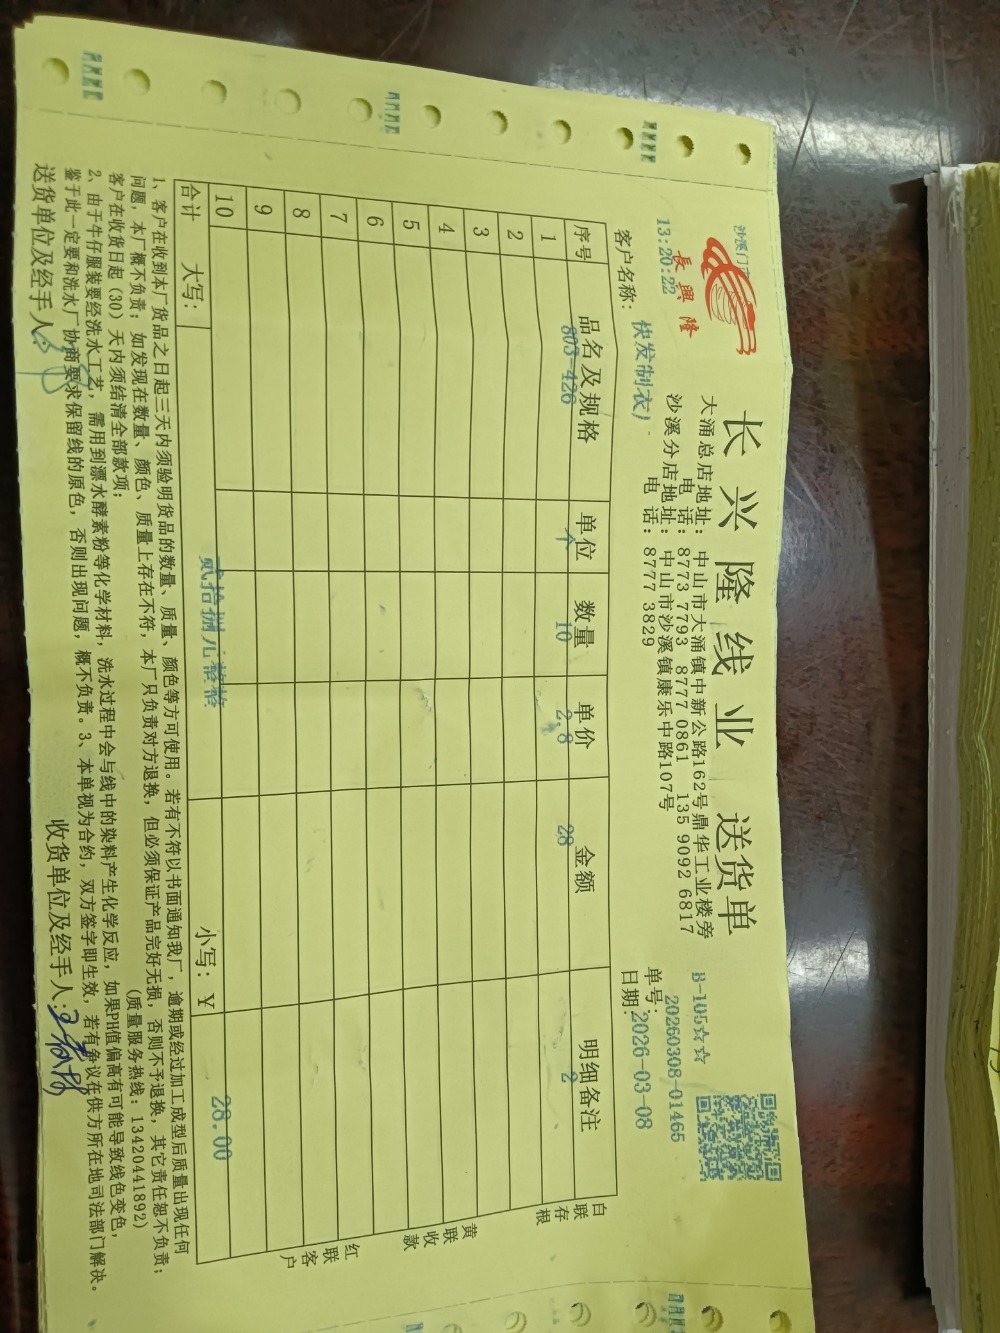 长兴隆线业 送货单
長興隆
沙溪门市
13:20:22
大涌总店地址：中山市大涌镇中新公路162号鼎华工业楼旁
电 话：8773 7793 8777 0861 135 9092 6817
沙溪分店地址：中山市沙溪镇康乐中路107号
电 话：8777 3829
B-105☆☆
单号：20260308-01465
日期：2026-03-08
客户名称：快发制衣厂
序号 品名及规格 单位 数量 单价 金额 明细备注
1 803-426 个 10 2.8 28 2
2
3
4
5
6
7
8
9
10
合计 大写： 贰拾捌元整 小写：￥ 28.00
白联存根
黄联收款
红联客户
1、客户在收到本厂货品之日起三天内须验明货品的数量、质量、颜色等方可使用。若有不符以书面通知我厂，逾期或经过加工成型后质量出现任何
问题，本厂概不负责；如发现在数量、颜色、质量上存在不符，本厂只负责对方退换，但必须保证产品完好无损，否则不予退换，其它责任恕不负责；
客户在收货日起（30）天内须结清全部款项； (质量服务热线：13420441892)
2、由于牛仔服装要经洗水工艺，需用到漂水酵素粉等化学材料，洗水过程中会与线中的染料产生化学反应，如果PH值偏高有可能导致线色变色，
鉴于此一定要和洗水厂协商要求保留线的原色，否则出现问题，概不负责。3、本单视为合约，双方签字即生效，若有争议在供方所在地司法部门解决。
送货单位及经手人： 收货单位及经手人：